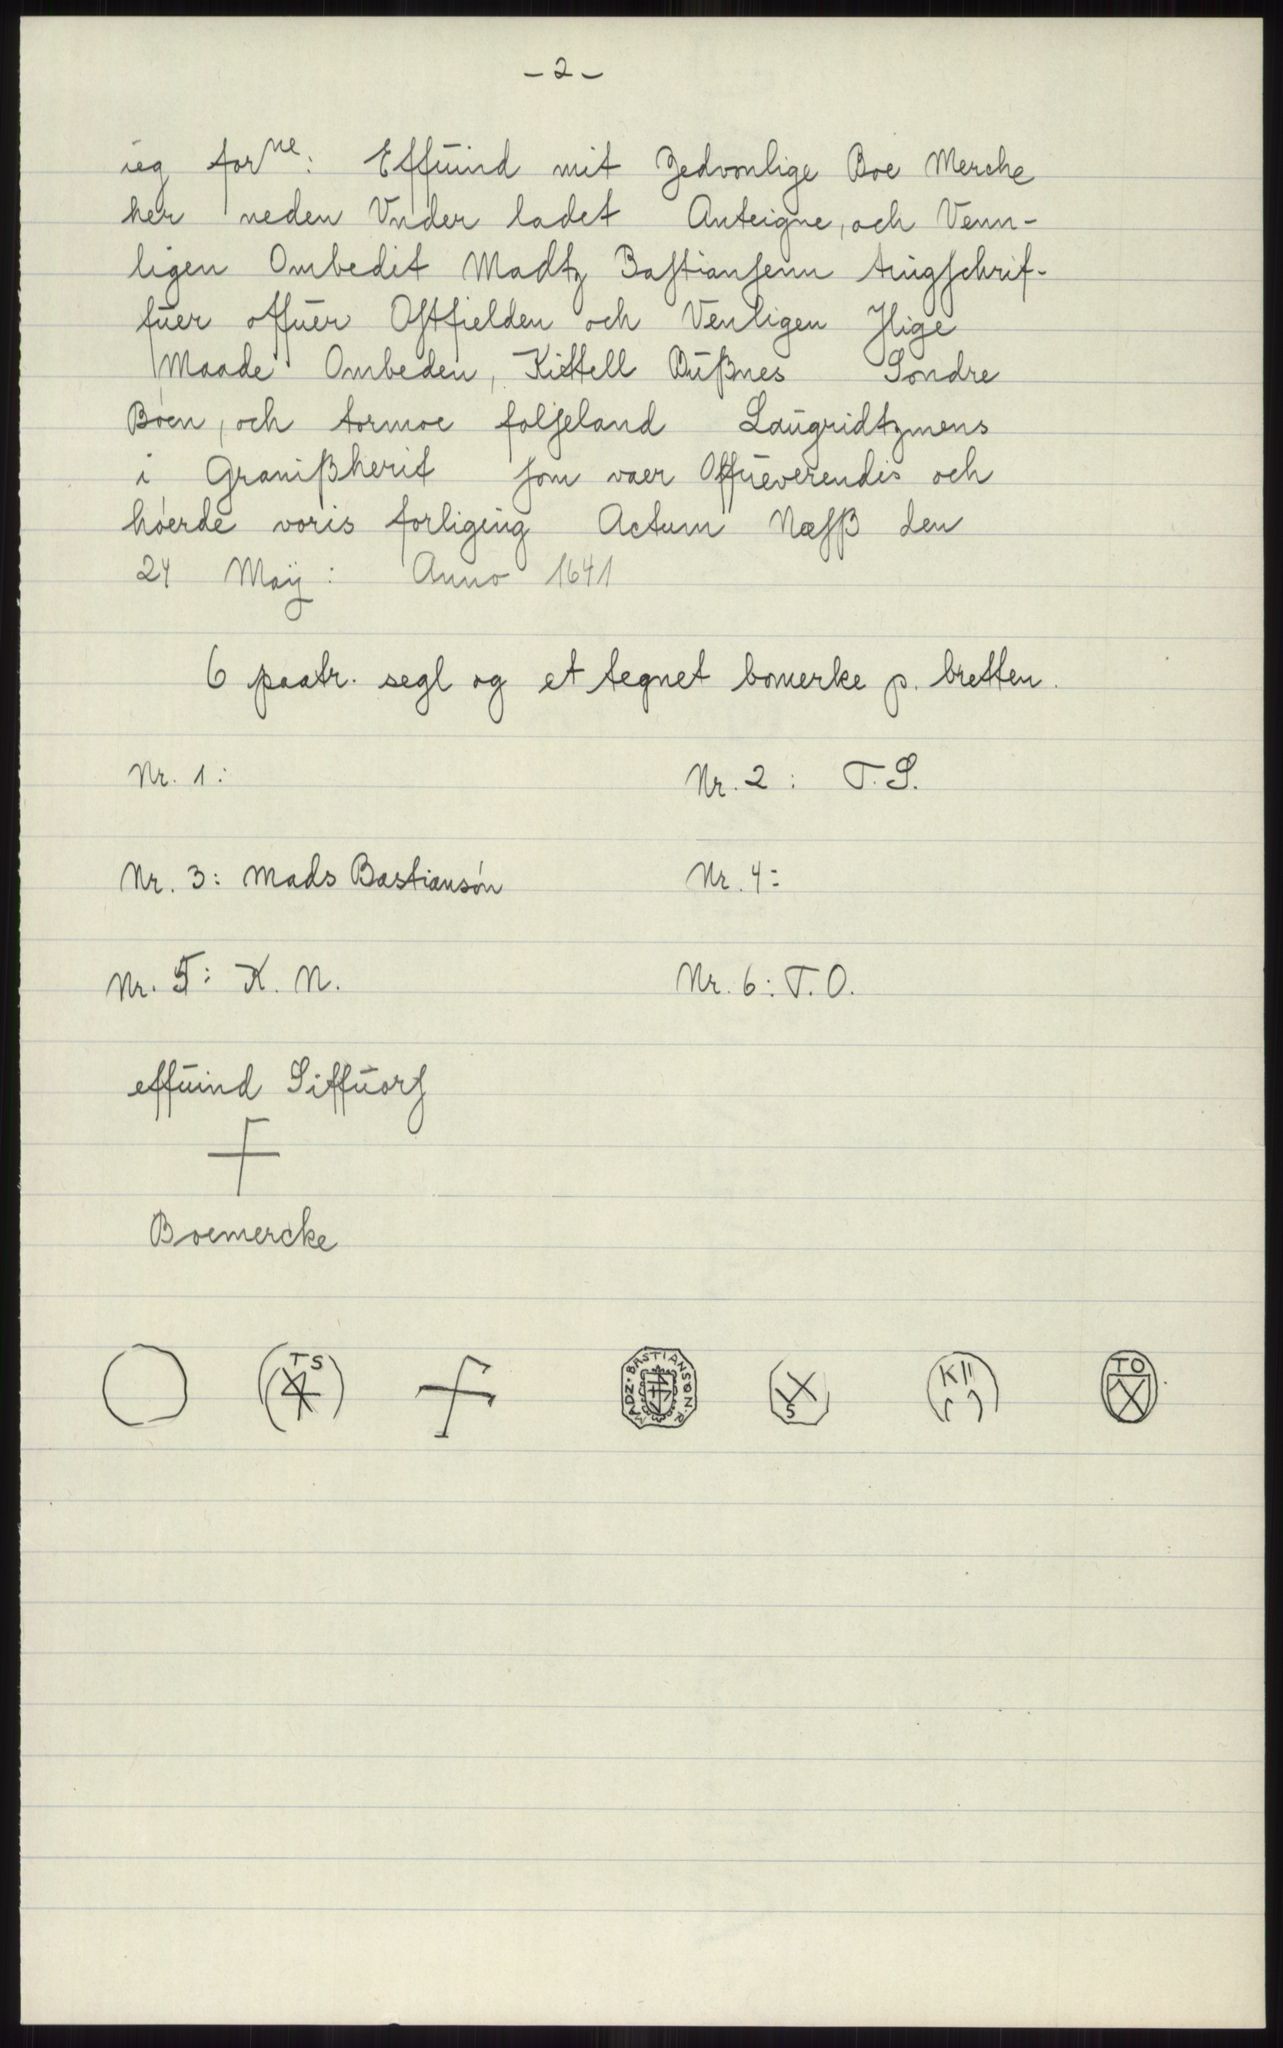 - 2 -
ieg for ne: Effuind mit Zedvonlige Boe Merche
her neden Vnder ladet Anteigne, och Venn-
ligen Ombedit Madtz Bastiansenn tingschrif-
fuer offuer Ostfielden och Venligen Jlige
Maade Ombeden, Kittell Bußnes Sondre
Bóen, och tormoe folseland Laugridtzmens
i Granißherit som vaer Offueverendis och
hóerde voris forliging Actum Næsß den
24 Maÿ: Anno 1641
6 paatr. segl og et tegnet bomerke p. bretten.
Nr. 1: Nr. 2: T.S.
Nr. 3: Mads Bastiansón Nr. 4:
Nr. 5: K. N. Nr. 6: T.O.
effuind Siffuors
Boemercke
TS MADZ·BASTIANSØN·R S K II TO